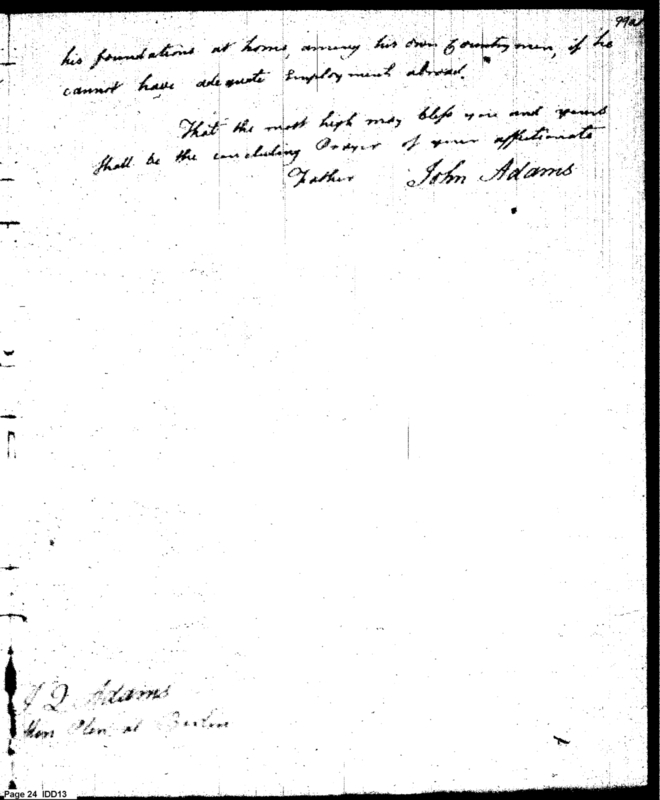 99a
his foundations at home, among his own Countrymen, if he
cannot have adequate Employment abroad.
That the most high may bless you and yours
Shall be the concluding Prayer of your affectionate
Father John Adams
J Q Adams
Min Plen. at Berlin
Page 24 IDD13